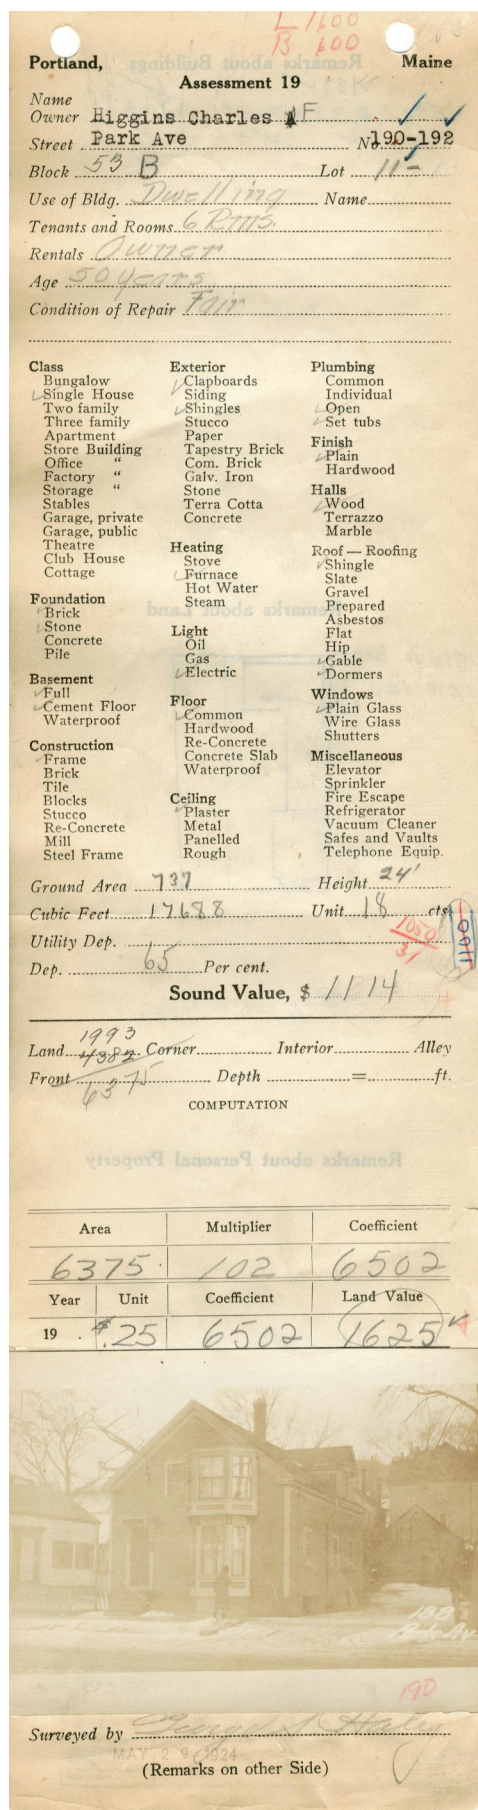 L 1600
B 600
Portland, Maine
Assessment 19
Name
Owner Higgins Charles F
Street Park Ave No. 190-192
Block 53 B Lot 11-
Use of Bldg. Dwelling Name
Tenants and Rooms 6 Rms.
Rentals Owner
Age 50 years
Condition of Repair Fair
Class
Bungalow
Single House
Two family
Three family
Apartment
Store Building
Office "
Factory "
Storage "
Stables
Garage, private
Garage, public
Theatre
Club House
Cottage
Foundation
Brick
Stone
Concrete
Pile
Basement
Full
Cement Floor
Waterproof
Construction
Frame
Brick
Tile
Blocks
Stucco
Re-Concrete
Mill
Steel Frame
Exterior
Clapboards
Siding
Shingles
Stucco
Paper
Tapestry Brick
Com. Brick
Galv. Iron
Stone
Terra Cotta
Concrete
Heating
Stove
Furnace
Hot Water
Steam
Light
Oil
Gas
Electric
Floor
Common
Hardwood
Re-Concrete
Concrete Slab
Waterproof
Ceiling
Plaster
Metal
Panelled
Rough
Plumbing
Common
Individual
Open
Set tubs
Finish
Plain
Hardwood
Halls
Wood
Terrazzo
Marble
Roof — Roofing
Shingle
Slate
Gravel
Prepared
Asbestos
Flat
Hip
Gable
Dormers
Windows
Plain Glass
Wire Glass
Shutters
Miscellaneous
Elevator
Sprinkler
Fire Escape
Refrigerator
Vacuum Cleaner
Safes and Vaults
Telephone Equip.
Ground Area 737 Height 24'
Cubic Feet 17688 Unit 18 cts.
Utility Dep. 1050
31
1100
Dep. 65 Per cent.
Sound Value, $ 1114
1993
Land 4382 Corner Interior Alley
Front 6375 Depth = ft.
COMPUTATION
Area Multiplier Coefficient
6375 102 6502
Year Unit Coefficient Land Value
19 $.25 6502 1625
188
Park Av
190
Surveyed by
MAY 29 1924
(Remarks on other Side)